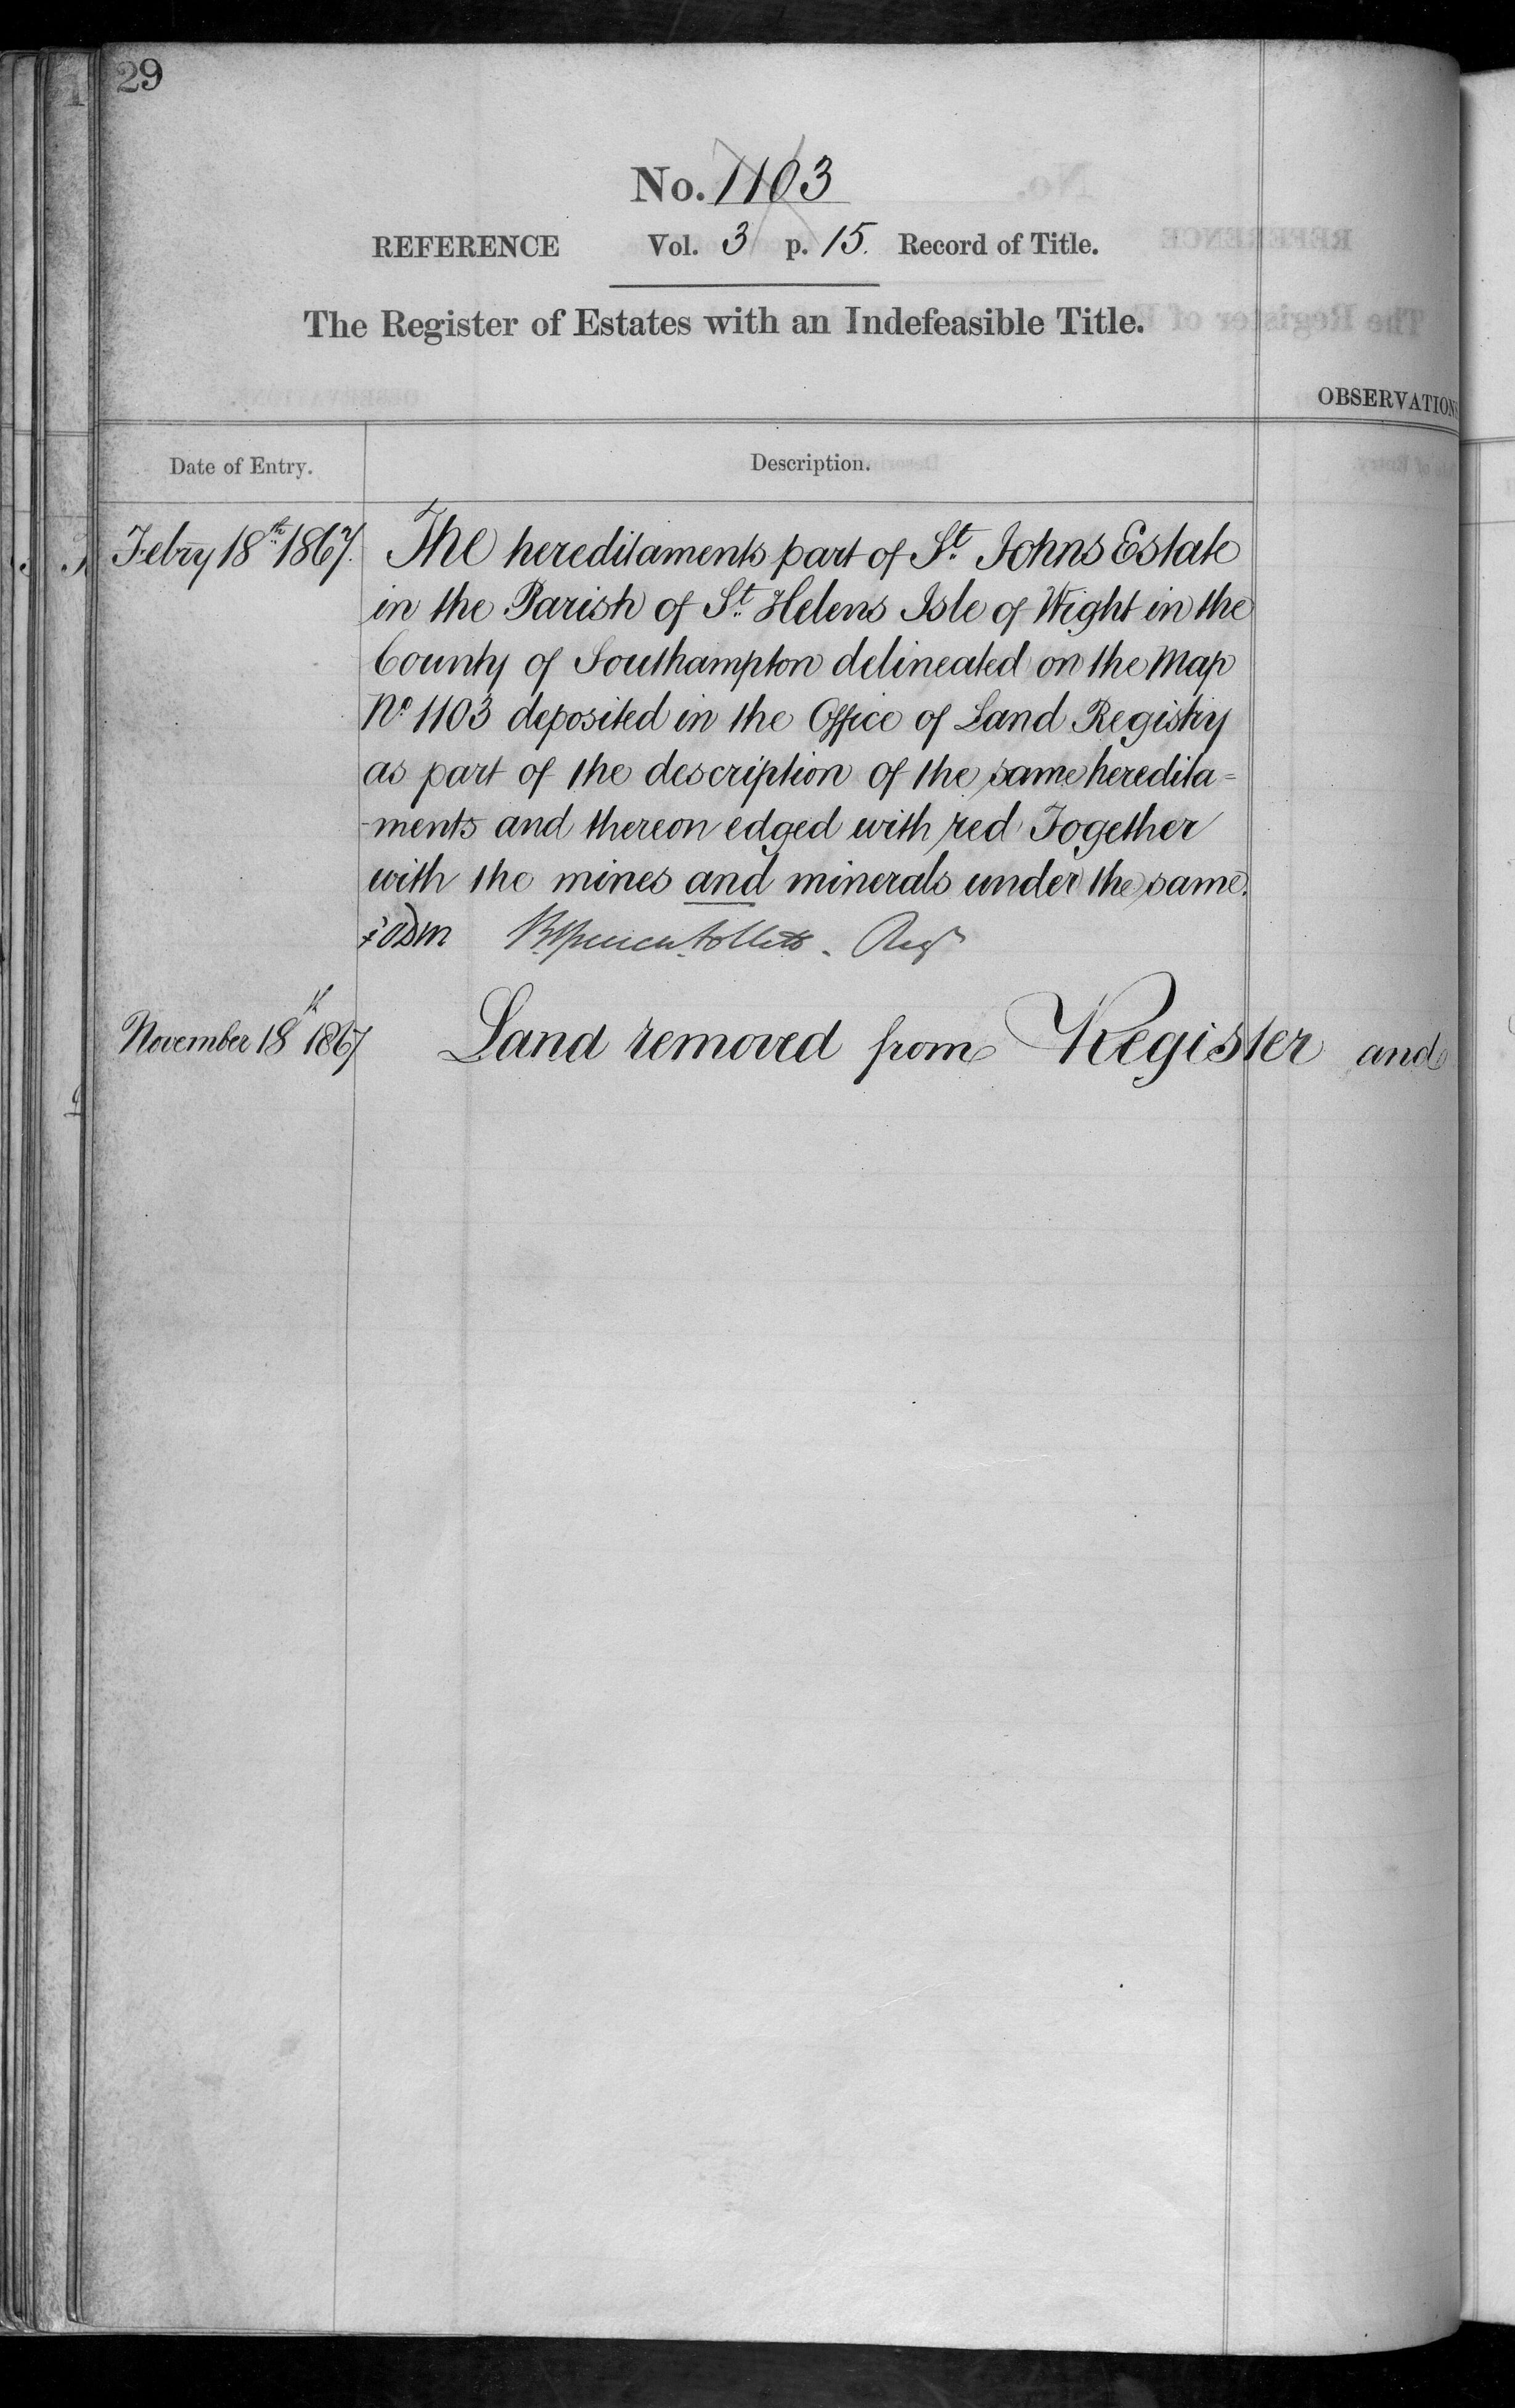 29
No. 1103
REFERENCE Vol. 3 p. 15. Record of Title.
The Register of Estates with an Indefeasible Title.
OBSERVATIONS
Date of Entry. Description.
Febry 18th 1867. The hereditaments part of St Johns Estate
in the Parish of St Helens Isle of Wight in the
County of Southampton delineated on the Map
No 1103 deposited in the Office of Land Registry
as part of the description of the same heredita=
-ments and thereon edged with red Together
with the mines and minerals under the same.
Follett. Regr
November 18th 1867 Land removed from Register and